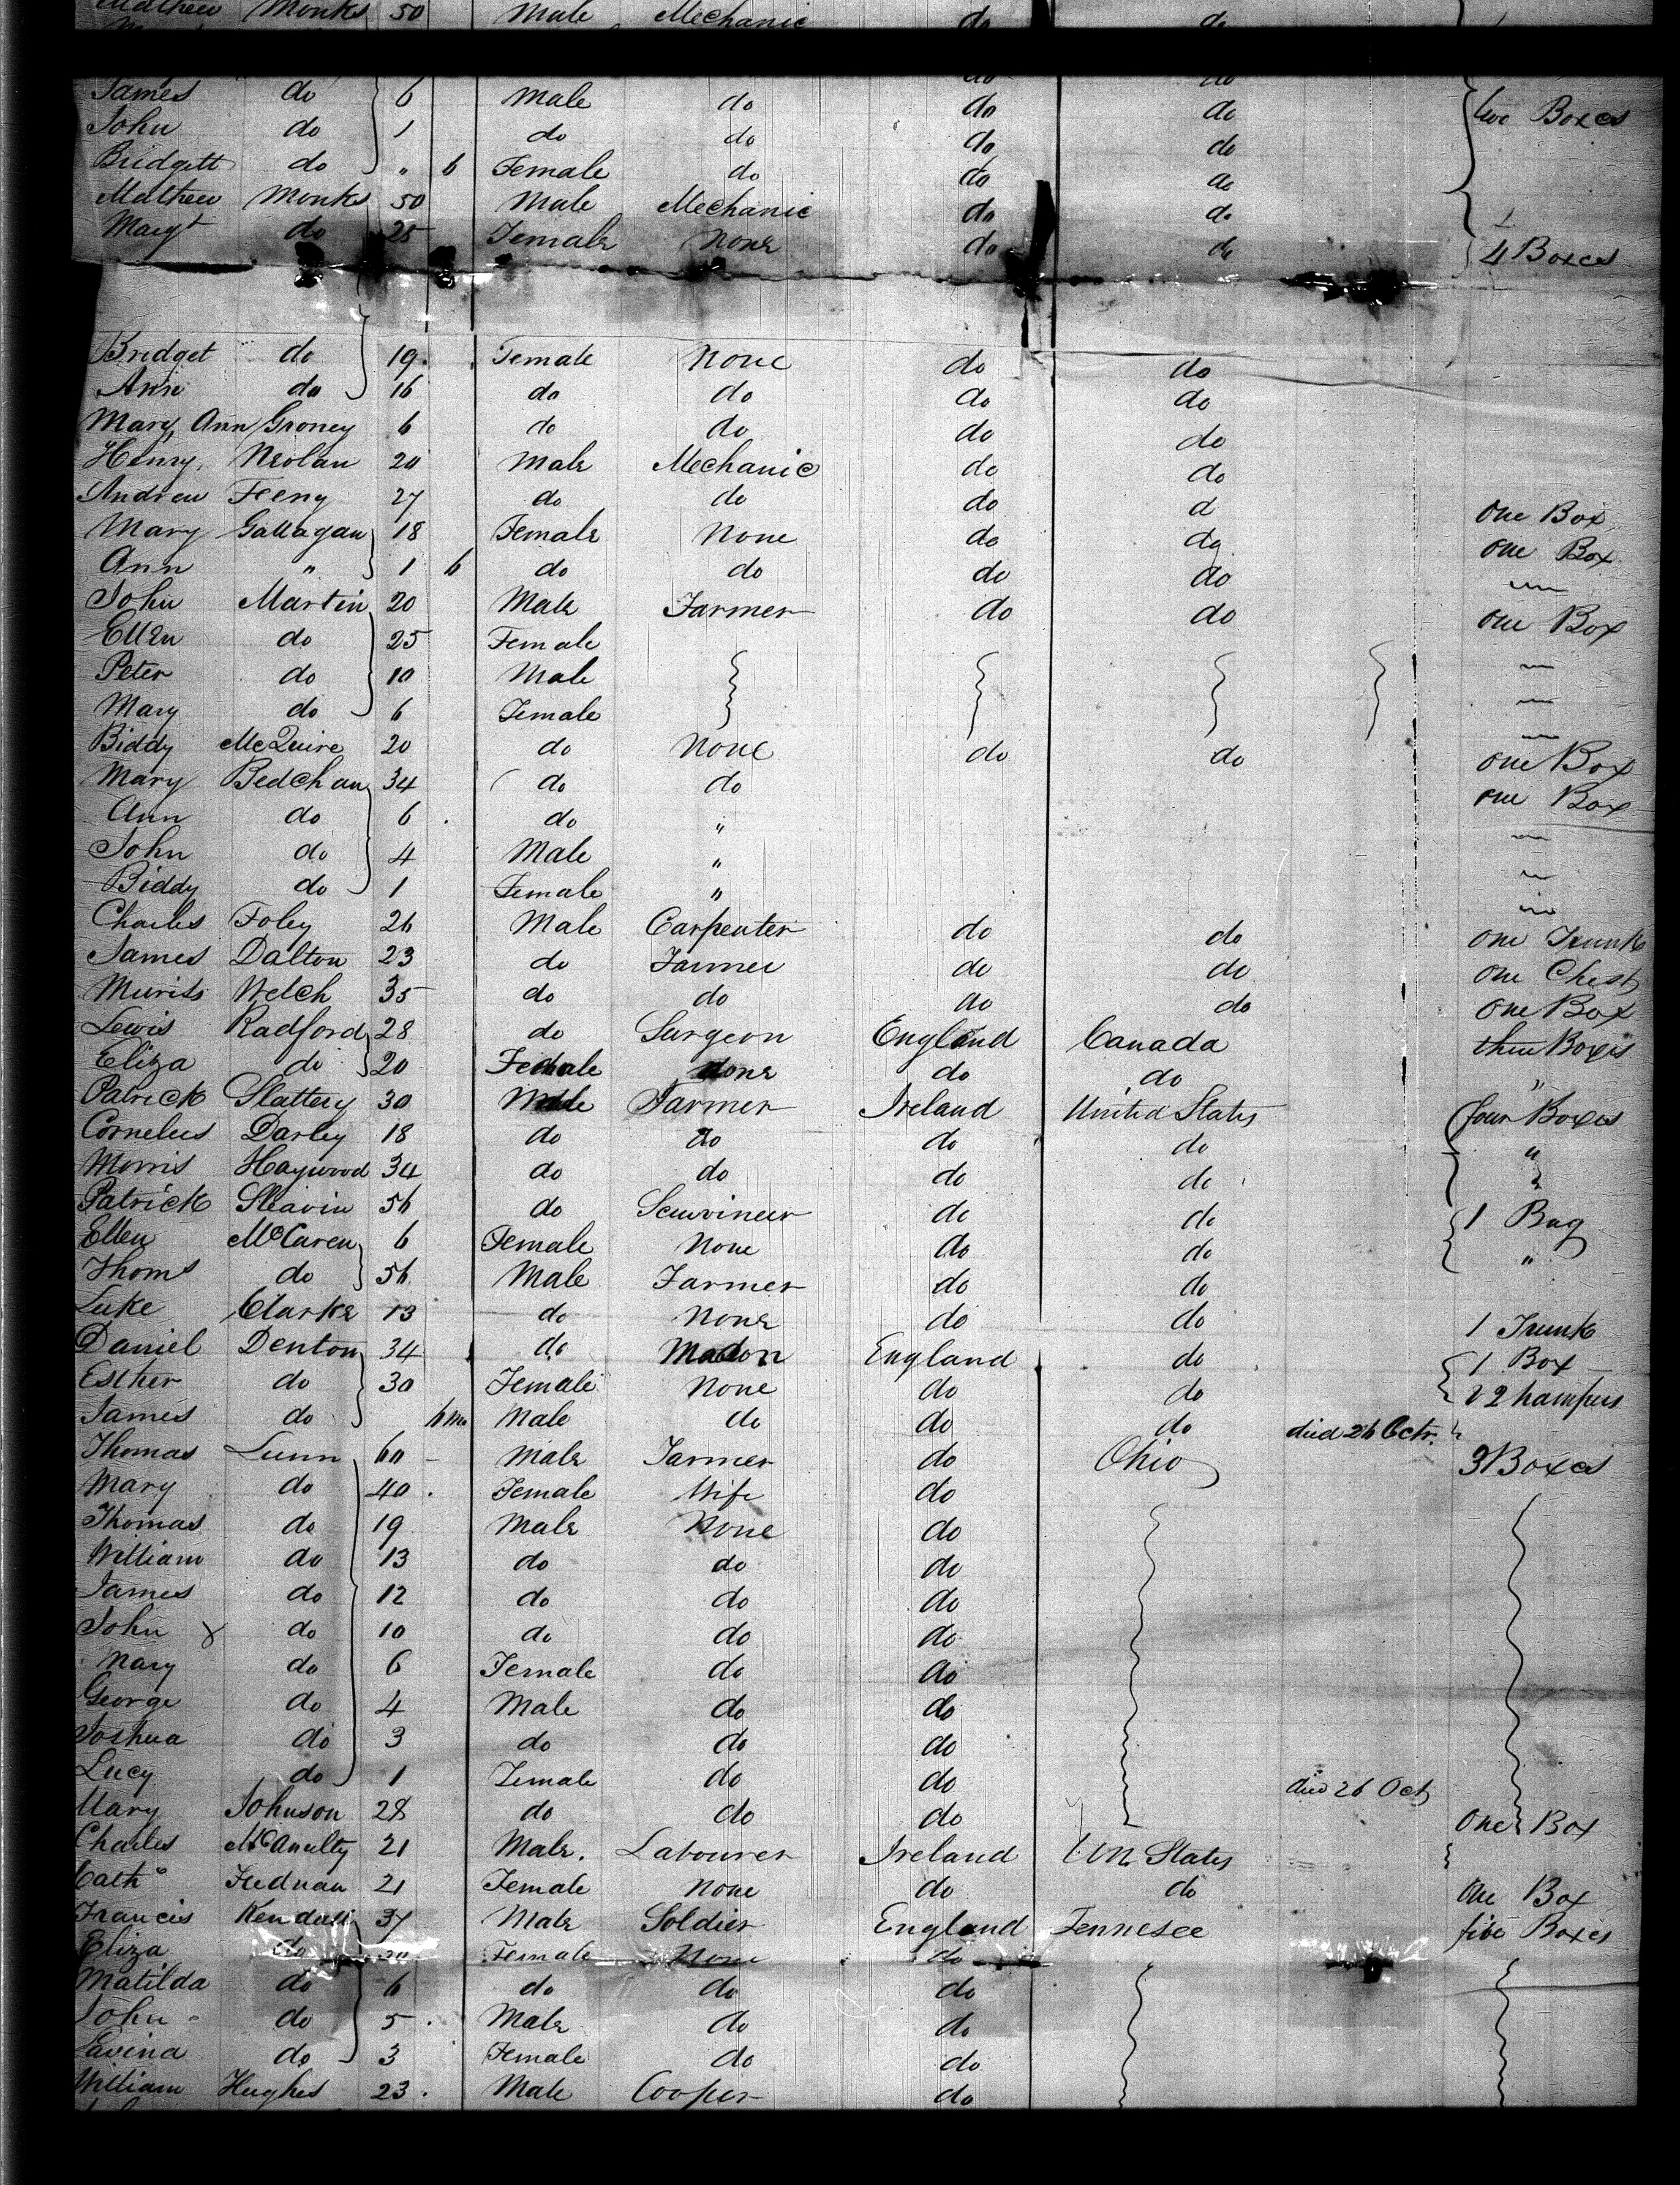 Mathew Monks 50 Male Mechanic do do
James do 6 Male do do do two Boxes
John do 1 do do do do
Bridgett do " 6 Female do do do
Mathew Monks 50 Male Mechanic do do 1
Margt do 25 Female None do do 4 Boxes
Bridget do 19 Female None do do
Ann do 16 do do do do
Mary Ann Groney 6 do do do do
Henry Neolan 20 Male Mechanic do do
Andrew Feeny 27 do do do d one Box
Mary Gallagan 18 Female None do do one Box
Ann " 1 6 do do do do
John Martin 20 Male Farmer do do one Box
Ellen do 25 Female
Peter do 10 Male
Mary do 6 Female
Biddy McQuire 20 do None do do one Box
Mary Bedchan 34 do do one Box
Ann do 6 do "
John do 4 Male "
Biddy do 1 Female "
Charles Foley 26 Male Carpenter do do one Trunk
James Dalton 23 do Farmer do do one Chest
Welch 35 do do do do one Box
Lewis Radford 28 do Surgeon England Canada three Boxes
Eliza do 20 Female None do do "
Patrick Slattery 30 Male Farmer Ireland United States four Boxes
Cornelius Darley 18 do do do do "
Morris Haywood 34 do do do do "
Patrick Slavin 56 do do do 1 Bag
Ellen McCaren 6 Female None do do "
Thoms do 56 Male Farmer do do
Luke Clarke 13 do None do do 1 Trunk
Daniel Denton 34 do Mason England do 1 Box
Esther do 30 Female None do do & 2 hampers
James do 6 mo Male do do do died 26 Octr. "
Thomas Lunn 60 Male Farmer do Ohio 3 Boxes
Mary do 40 Female Wife do
Thomas do 19 Male None do
William do 13 do do do
James do 12 do do do
John do 10 do do do
Mary do 6 Female do do
George do 4 Male do do
Joshua do 3 do do do
Lucy do 1 Female do do died 26 Oct
Mary Johnson 28 do do do One Box
Charles McAnulty 21 Male Labourer Ireland Un. States
Cath Fednan 21 Female None do do One Box
Francis Kendall 37 Male Soldier England Tennesee five Boxes
Eliza do Female None do
Matilda do 6 do do do
John do 5 Male do do
Lavina do 3 Female do do
William Hughes 23 Male Cooper do